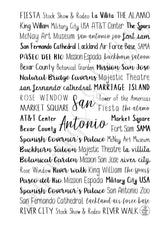 FIESTA Stock Show & Rodeo La Villita THE ALAMO
King William Military City USA AT&T Center The Spurs
McNay Art Museum san antonio zoo fort sam
San Fernando Cathedral Lackland Air Force Base SAMA
PASEO DEL RIO Mission Espada
Bexar County Botanical Garden Missions San Jose
Natural Bridge Caverns Majestic Theatre
san fernando cathedral MARRIAGE ISLAND
ROSE WINDOW Tower of the Americas
MARKET SQUARE San Fiesta the alamo
AT&T Center Antonio Market Square
Bexar County Fort Sam SAMA
Spanish Governor's Palace McNay Art Museum
Majestic Theatre La Villita
Botanical Garden Mission San Jose
Rose Window River walk King William the spurs
Paseo del Rio Mission Espada Military City USA
Spanish Governor's Palace San Antonio Zoo
San Fernando Cathedral lackland air force base
RIVER CITY Stock Show & Rodeo RIVER WALK